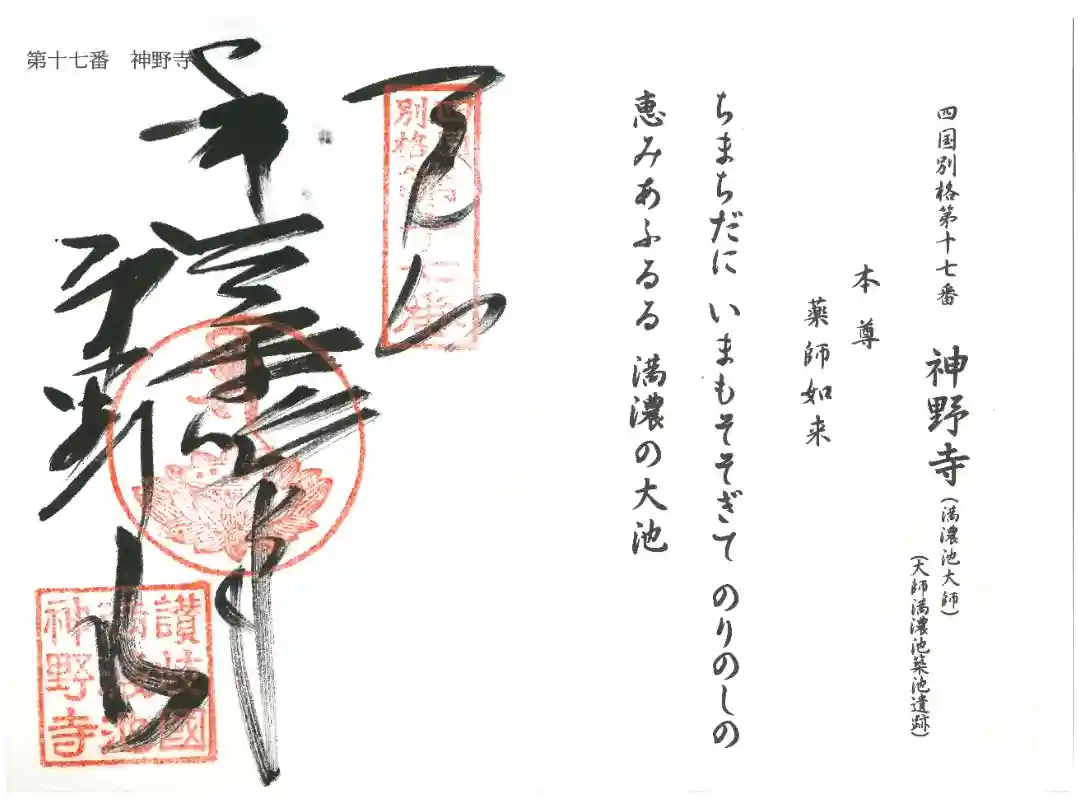 第十七番　神野寺
四国別格第十七番　神野寺（満濃池大師）
（大師満濃池築池遺跡）
本尊
薬師如来
ちまちだに　いまもそそぎて　のりのしの
恵みあふるる　満濃の大池
讃岐國
満濃池
神野寺